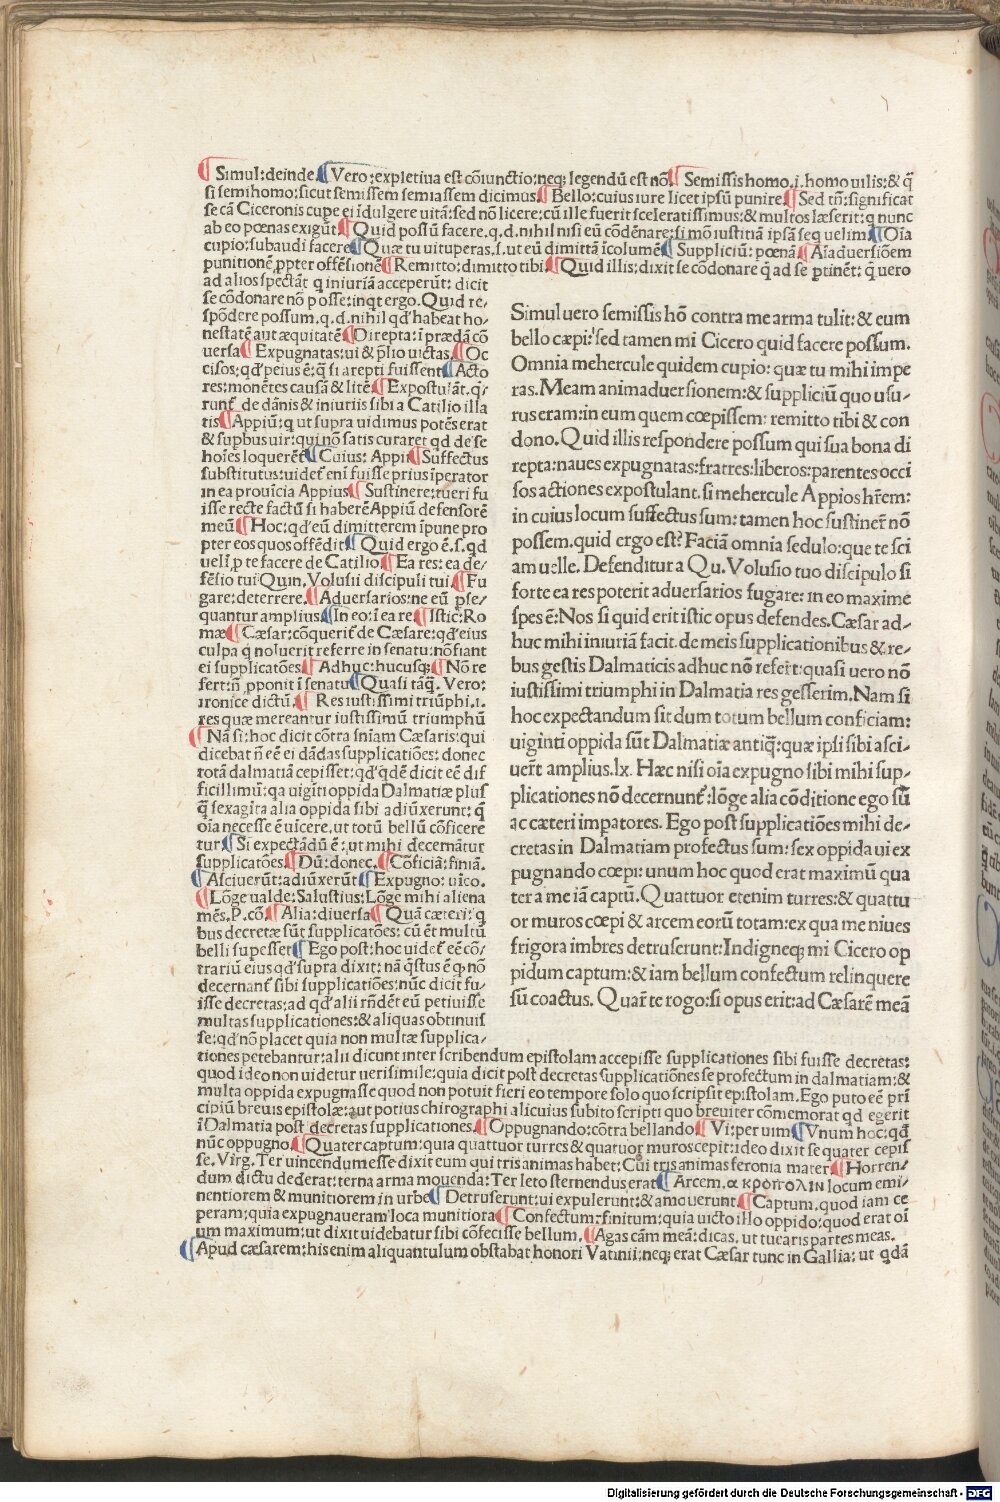 ¶ Simul: deinde ¶ Vero: expletiua est cōiunctio: neqꝫ legendū est nō ¶ Semissis homo .i. homo uilis: & q̄
si semihomo: sicut semissem semiassem dicimus ¶ Bello: cuius iure licet ipsū punire ¶ Sed tn̄: significat
se cā Ciceronis cupe ei īdulgere uitā: sed nō licere: cū ille fuerit sceleratissimus: & multos læserit: q nunc
ab eo pœnas exigūt ¶ Quid possū facere. q. d. nihil nisi eū cōdēnare: si mō iustitiā ipsā seq uelim ¶ Oīa
cupio: subaudi facere ¶ Quæ tu uituperas. s. ut eū dimittā īcolumē ¶ Suppliciū: pœnā ¶ Aīaduersiōem
punitionē ꝓpter offēsionē ¶ Remitto: dimitto tibi ¶ Quid illis: dixit se cōdonare q̄ ad se ꝑtinēt: q̄ uero
ad alios spectāt q iniuriā acceperūt: dicit
se cōdonare nō posse: inqt ergo. Quid re/
spōdere possum. q. d. nihil qd' habeat ho/
nestatē aut æquitatē ¶ Direpta: ī prædā cō
uersa ¶ Expugnatas: ui & p̄lio uictas ¶ Oc
cisos: qd' peius ē: q̄ si arepti fuissent ¶ Acto
res: monētes causā & litē ¶ Expostulāt. q̄/
runt̄ de dānis & iniuriis sibi a Catilio illa
tis ¶ Appiū: q ut supra uidimus potēs erat
& supbus uir: qui nō satis curaret qd de se
hoīes loquerēt̄ ¶ Cuius: Appii ¶ Suffectus
substitutus: uidet̄ enī fuisse prius īperator
in ea prouīcia Appius ¶ Sustinere: tueri fu
isse recte factū si haberē Appiū defensorē
meū ¶ Hoc: qd' eū dimitterem īpune pro
pter eos quos offēdit ¶ Quid ergo ē. s. qd
uelī ꝓ te facere de Catilio ¶ Ea res: ea de/
fēsio tui Quin. Volusii discipuli tui ¶ Fu
gare: deterrere. ¶ Aduersarios: ne eū ꝑse/
quantur amplius ¶ In eo: ī ea re ¶ Istic: Ro
mæ ¶ Cæsar: cōquerit̄ de Cæsare: qd' eius
culpa q noluerit referre in senatu: nō fiant
ei supplicatōes ¶ Adhuc: hucusqꝫ ¶ Nō re
fert: n̄ ꝓponit ī senatu ¶ Quasi tāq̄. Vero:
ironice dictū. ¶ Res iustissimi triūphi .i.
res quæ mereantur iustissimū triumphū
¶ Nā si: hoc dicit cōtra sn̄iam Cæsaris: qui
dicebat n̄ eē ei dādas supplicatiōes: donec
totā dalmatiā cepisset: qd' qdē dicit eē dif
ficillimū: qa uigīti oppida Dalmatiæ plus
q̄ sexagīta alia oppida sibi adiūxerunt: q̄
oīa necesse ē uīcere, ut totū bellū cōficere
tur ¶ Si expectādū ē: ut mihi decernātur
supplicatōes ¶ Dū: donec. ¶ Cōficiā: finiā.
¶ Asciuerūt: adiūxerūt ¶ Expugno: uīco.
¶ Lōge ualde: Salustius: Lōge mihi aliena
mēs. P. cō. ¶ Alia: diuersa ¶ Quā cæteri: q
bus decretæ sūt supplicatōes: cū ēt multū
belli supesset ¶ Ego post: hoc uidet̄ eē cō/
trariū eius qd' supra dixit: nā q̄stus ē ꝙ nō
decernant̄ sibi supplicatiōes: nūc dicit fu/
isse decretas: ad qd' alii rn̄dēt eū petiuisse
multas supplicationes: & aliquas obtinuis
se: qd' nō placet quia non multæ supplica/
tiones petebantur: alii dicunt inter scribendum epistolam accepisse supplicationes sibi fuisse decretas:
quod ideo non uidetur uerisimile: quia dicit post decretas supplicationēs se profectum in dalmatiam: &
multa oppida expugnasse quod non potuit fieri eo tempore solo quo scripsit epistolam. Ego puto eē prī
cipiū breuis epistolæ: aut potius chirographi alicuius subito scripti quo breuiter cōmemorat qd egerit
ī Dalmatia post decretas supplicationes. ¶ Oppugnando: cōtra bellando ¶ Vi: per uim ¶ Vnum hoc: qd̄
nūc oppugno ¶ Quater captum: quia quattuor turres & quatuor muros cepit: ideo dixit se quater cepis
se. Virg. Ter uincendum esse dixit eum qui tris animas habet: Cui tris animas feronia mater ¶ Horren/
dum dictu dederat: terna arma mouenda: Ter leto sternendus erat ¶ Arcem. ακροπολιν locum emi/
nentiorem & munitiorem in urbe ¶ Detruserunt: ui expulerunt: & amouerunt ¶ Captum. quod iam ce
peram: quia expugnaueram loca munitiora ¶ Confectum: finitum: quia uicto illo oppido: quod erat oī
um maximum: ut dixit uidebatur sibi cōfecisse bellum. ¶ Agas cām meā: dicas. ut tuearis partes meas.
¶ Apud cæsarem: his enim aliquantulum obstabat honori Vatinii: neqꝫ erat Cæsar tunc in Gallia: ut qdā
Simul uero semissis hō contra me arma tulit: & eum
bello cæpi: sed tamen mi Cicero quid facere possum.
Omnia mehercule quidem cupio: quæ tu mihi impe
ras. Meam animaduersionem: & suppliciū quo usu/
rus eram: in eum quem cœpissem: remitto tibi & con
dono. Quid illis respondere possum qui sua bona di
repta: naues expugnatas: fratres: liberos: parentes occi
sos actiones expostulant. si mehercule Appios hr̄em:
in cuius locum suffectus sum: tamen hoc sustinēr nō
possem. quid ergo est? Faciā omnia sedulo: que te sci
am uelle. Defenditur a Qu. Volusio tuo discipulo si
forte ea res poterit aduersarios fugare: in eo maxime
spes ē: Nos si quid erit istic opus defendes. Cæsar ad/
huc mihi iniuriā facit. de meis supplicationibus & re/
bus gestis Dalmaticis adhuc nō refert: quasi uero nō
iustissimi triumphi in Dalmatia res gesserim. Nam si
hoc expectandum sit dum totum bellum conficiam:
uiginti oppida sūt Dalmatiæ antiq̄: quæ ipsi sibi asci/
uer̄t amplius .lx. Hæc nisi oīa expugno sibi mihi sup/
plicationes nō decernunt̄: lōge alia cōditione ego sū
ac cæteri impatores. Ego post supplicatiōes mihi de/
cretas in Dalmatiam profectus sum: sex oppida ui ex
pugnando cœpi: unum hoc quod erat maximū qua
ter a me iā captū. Quattuor etenim turres: & quattu
or muros cœpi & arcem eorū totam: ex qua me niues
frigora imbres detruserunt: Indigneqꝫ mi Cicero op
pidum captum: & iam bellum confectum relinquere
sū coactus. Quar̄ te rogo: si opus erit: ad Cæsarē meā
Digitalisierung gefördert durch die Deutsche Forschungsgemeinschaft - DFG